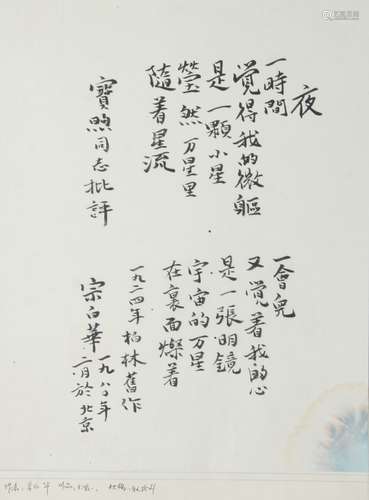 夜
一時間
覺得我的微軀
是一顆小星
瑩然万星里
隨着星流
一會兒
又覺着我的心
是一張明鏡
宇宙的万星
在裏面燦着
一九二四年柏林舊作
寶煦同志批評
宗白華
一九八〇年
月於北京